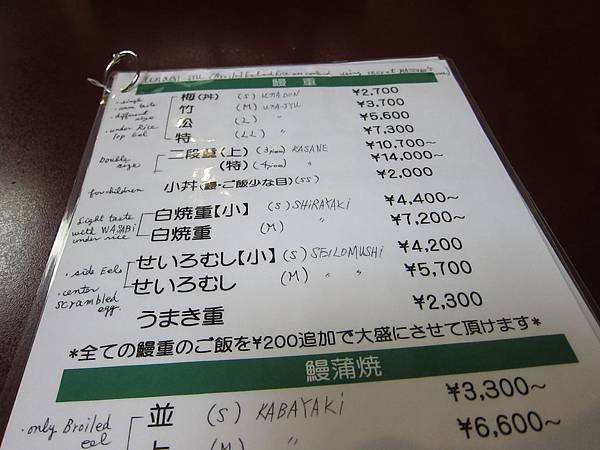 UNAGI JYU (Broiled Eel and Rice are cooked using secret
鰻重
・single
・same taste
・different size
・under Rice Top Eel
梅(丼) (S) UNADON ¥2,700
竹 (M) UNAJYU ¥3,700
松 (L) 〃 ¥5,600
特 (LL) 〃 ¥7,300
Double size
二段重(上) KASANE ¥10,700~
(特) 〃 ¥14,000~
for children
小丼(鰻・ご飯少な目)(SS) ¥2,000
Light taste with WASABi under rice
白焼重【小】 (S) SHiRAYAKi ¥4,400~
白焼重 (M) 〃 ¥7,200~
・side Eel
・center Scrambled egg.
せいろむし【小】 (S) SEILOMUSHi ¥4,200
せいろむし (M) 〃 ¥5,700
うまき重 ¥2,300
*全ての鰻重のご飯を¥200追加で大盛にさせて頂けます*
鰻蒲焼
・only Broiled eel
並 (S) KABAYAKi ¥3,300~
上 (M) 〃 ¥6,600~